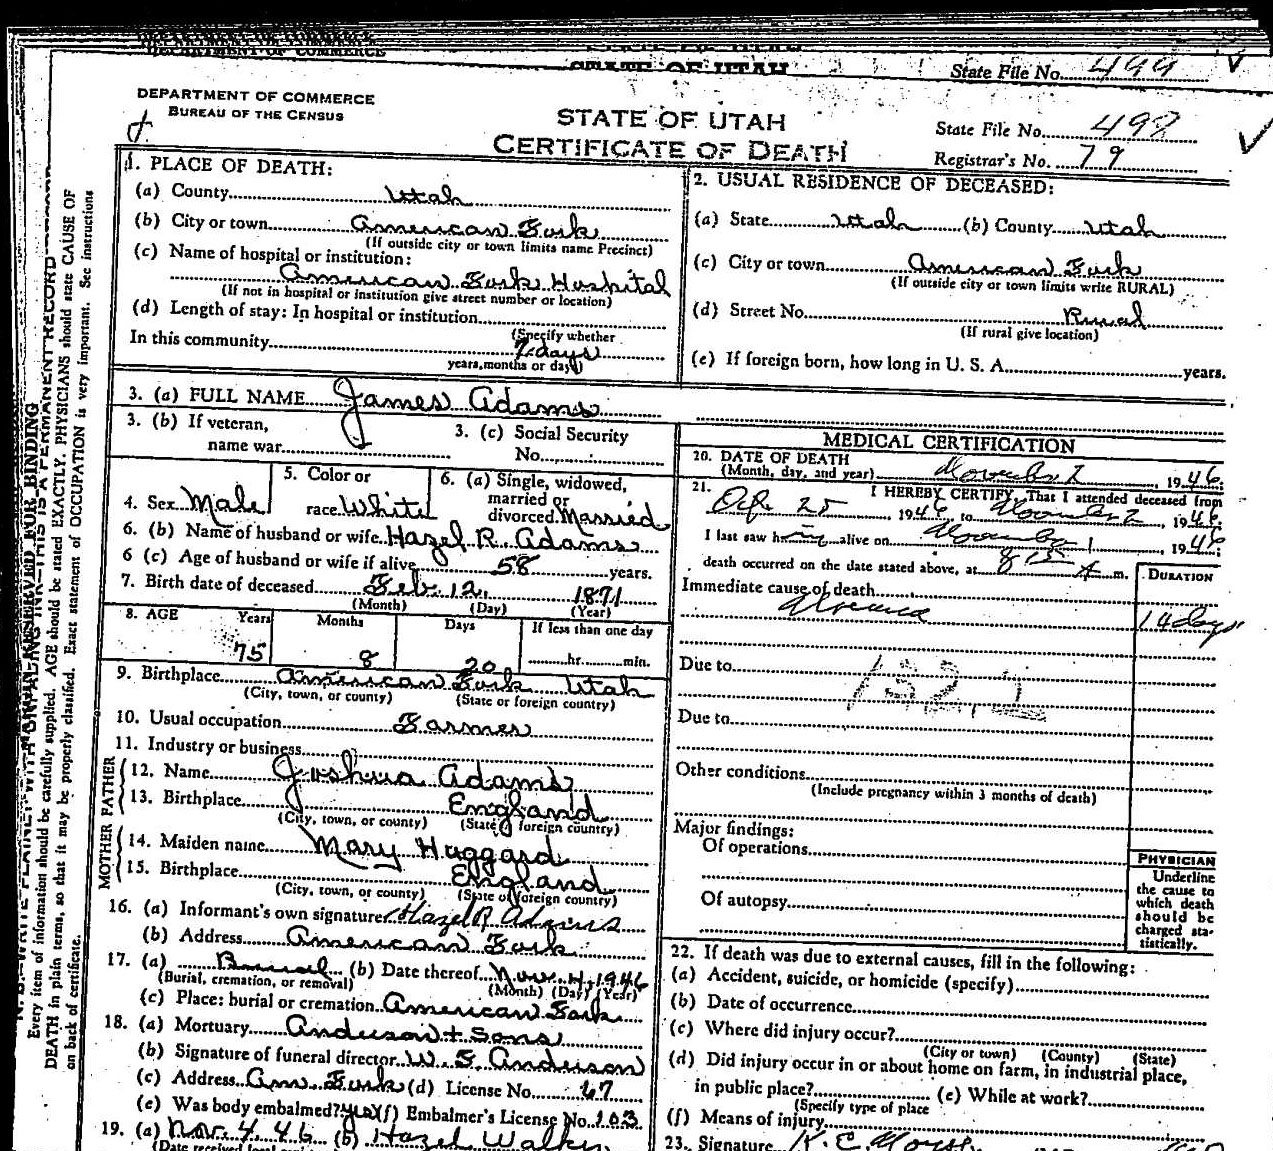 STATE OF UTAH
State File No. 499
DEPARTMENT OF COMMERCE
BUREAU OF THE CENSUS
STATE OF UTAH
CERTIFICATE OF DEATH
State File No. 498
Registrar's No. 79
1. PLACE OF DEATH:
(a) County Utah
(b) City or town American Fork
(If outside city or town limits name Precinct)
(c) Name of hospital or institution:
American Fork Hospital
(If not in hospital or institution give street number or location)
(d) Length of stay: In hospital or institution
(Specify whether
In this community 7 days
years, months or days)
2. USUAL RESIDENCE OF DECEASED:
(a) State Utah (b) County Utah
(c) City or town American Fork
(If outside city or town limits write RURAL)
(d) Street No. Rural
(If rural give location)
(e) If foreign born, how long in U. S. A. years.
3. (a) FULL NAME James Adams
3. (b) If veteran,
name war
3. (c) Social Security
No.
4. Sex Male
5. Color or
race White
6. (a) Single, widowed,
married or
divorced Married
6. (b) Name of husband or wife Hazel R. Adams
6 (c) Age of husband or wife if alive 58 years.
7. Birth date of deceased Feb. 12, 1871
(Month) (Day) (Year)
8. AGE Years Months Days If less than one day
75 8 20 hr. min.
9. Birthplace American Fork Utah
(City, town, or county) (State or foreign country)
10. Usual occupation Farmer
11. Industry or business
FATHER
12. Name Joshua Adams
13. Birthplace England
(City, town, or county) (State or foreign country)
MOTHER
14. Maiden name Mary Huggard
15. Birthplace England
(City, town, or county) (State or foreign country)
16. (a) Informant's own signature Hazel R Adams
(b) Address American Fork
17. (a) Burial (b) Date thereof Nov. 4, 1946
(Burial, cremation, or removal) (Month) (Day) (Year)
(c) Place: burial or cremation American Fork
18. (a) Mortuary Anderson + Sons
(b) Signature of funeral director W. E. Anderson
(c) Address Am. Fork (d) License No. 67
(e) Was body embalmed? yes (f) Embalmer's License No. 103
19. (a) Nov. 4, 46 (b) Hazel
MEDICAL CERTIFICATION
20. DATE OF DEATH
(Month, day, and year) November 2, 1946;
21. I HEREBY CERTIFY, That I attended deceased from
25, 1946, to November 2, 1946;
I last saw him alive on November 1, 1946
death occurred on the date stated above, at 8 15 A m.
DURATION
Immediate cause of death
14 days
Due to
132.2
Due to
Other conditions
(Include pregnancy within 3 months of death)
Major findings:
Of operations
Of autopsy
PHYSICIAN
Underline
the cause to
which death
should be
charged sta-
tistically.
22. If death was due to external causes, fill in the following:
(a) Accident, suicide, or homicide (specify)
(b) Date of occurrence
(c) Where did injury occur?
(City or town) (County) (State)
(d) Did injury occur in or about home on farm, in industrial place,
in public place? (e) While at work?
(Specify type of place
(f) Means of injury
23. Signature
Every item of information should be carefully supplied. AGE should be stated EXACTLY. PHYSICIANS should state CAUSE OF
DEATH in plain terms, so that it may be properly classified. Exact statement of OCCUPATION is very important. See instructions
on back of certificate.